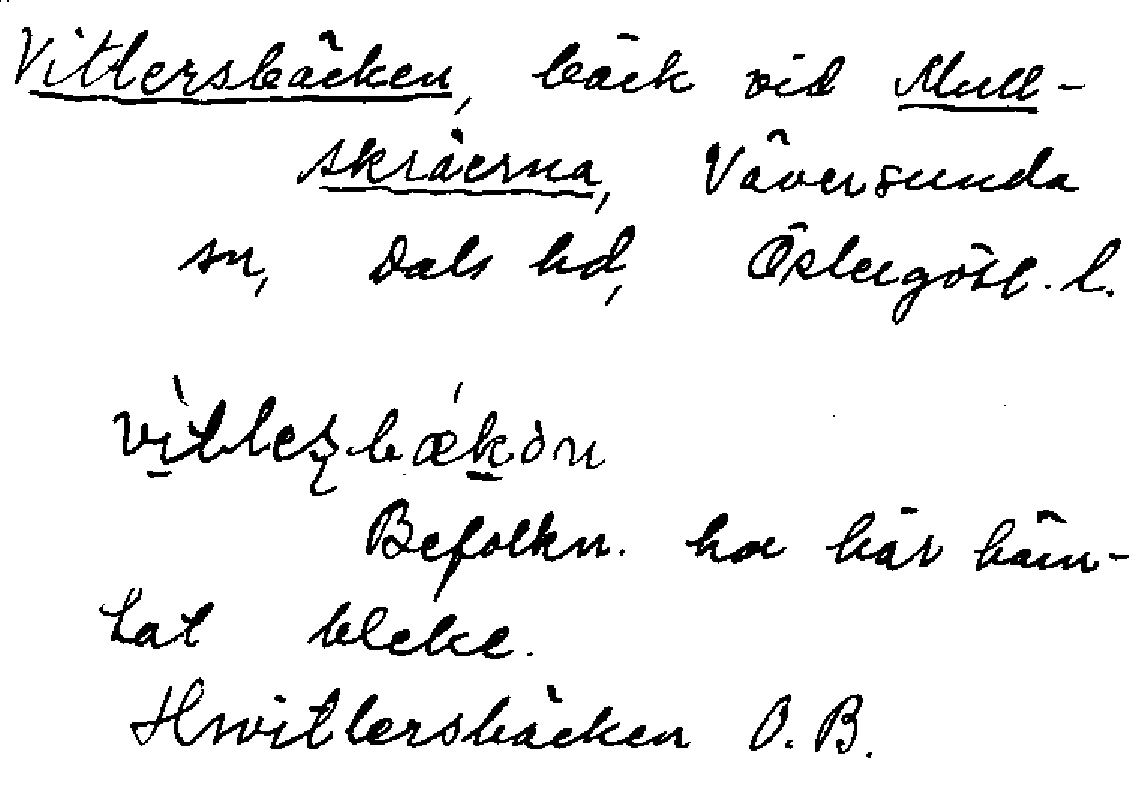 Vitlersbäcken, bäck vid Mull-
skräerna, Väversunda
sn, Dals hd, Östergötl. l.
vitlesbækən
Befolkn. har här häm-
tat bleke.
Hwitlersbäcken O. B.